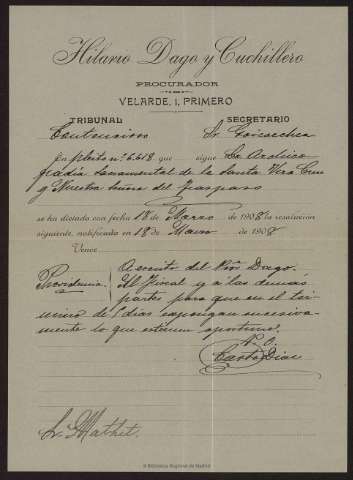 Hilario Dago y Cuchillero
PROCURADOR
VELARDE, 1, PRIMERO
TRIBUNAL SECRETARIO
Contencioso Sr. Goicoechea
En pleito n.º 6.618 que sigue La Archico-
fradia Sacramental de la Santa Vera Cruz
y Nuestra Señora del Traspaso
se ha dictado con fecha 10 de Marzo de 1908 la resolución
siguiente, notificada en 18 de Marzo de 1908
Vence
Providencia A escrito del Pror Dago.
Al Fiscal y a las demás
partes para que en el tér-
mino de días expongan sucesiva-
mente lo que estimen oportuno.
P. O.
Sr. Mathet.
© Biblioteca Regional de Madrid